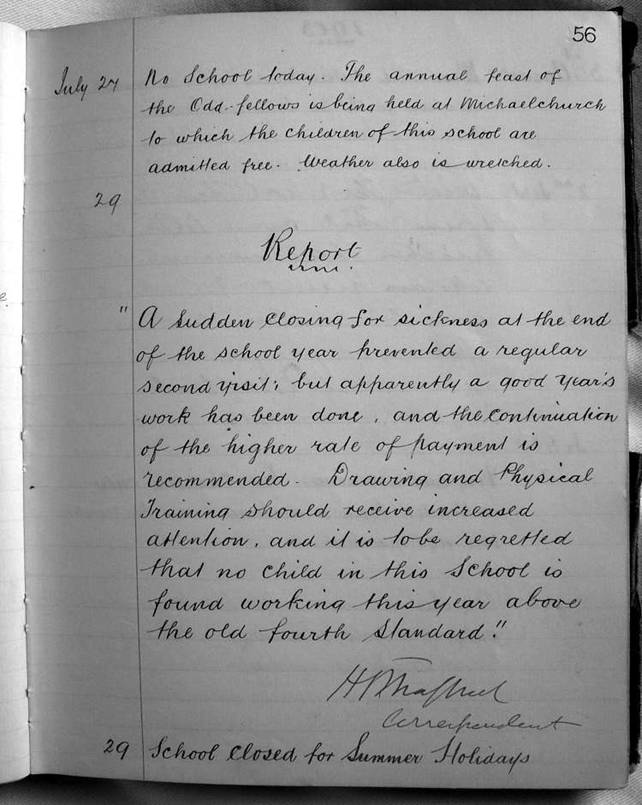 56
July 27 No School today. The annual feast of
the Odd-fellows is being held at Michaelchurch
to which the children of this school are
admitted free. Weather also is wretched.
29
Report
"A sudden closing for sickness at the end
of the school year prevented a regular
second visit; but apparently a good year's
work has been done, and the continuation
of the higher rate of payment is
recommended. Drawing and Physical
Training should receive increased
attention, and it is to be regretted
that no child in this School is
found working this year above
the old fourth standard."
Correspondent
29 School closed for Summer Holidays